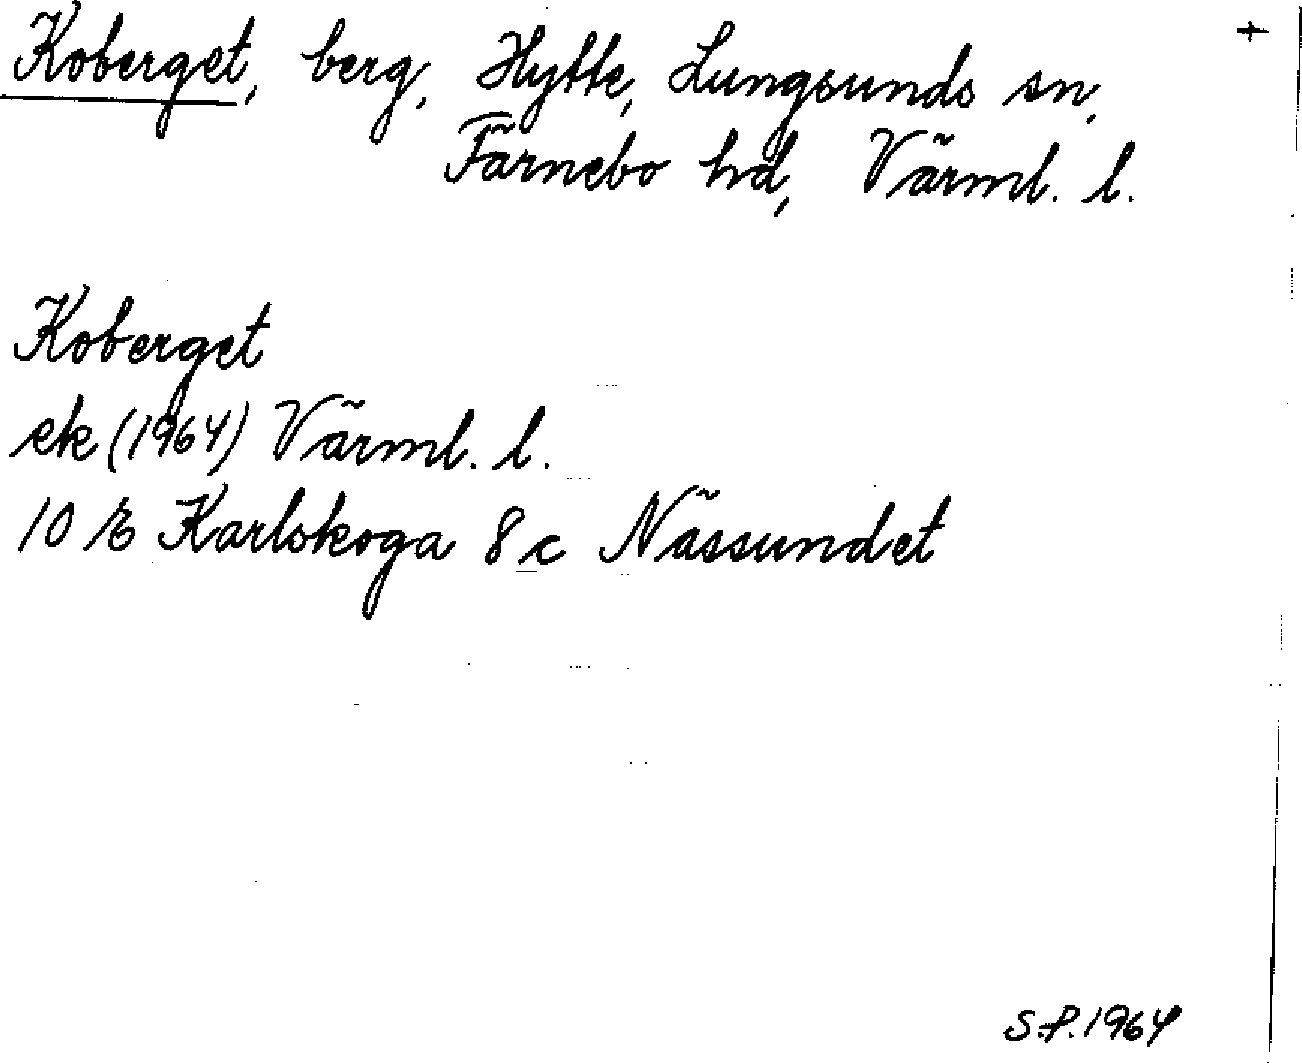 Koberget, berg, Hytte, Lungsunds sn,
Färnebo hd, Värml. l.
Koberget
ek (1964) Värml. l.
10 E Karlskoga 8c Nässundet
S.P. 1964